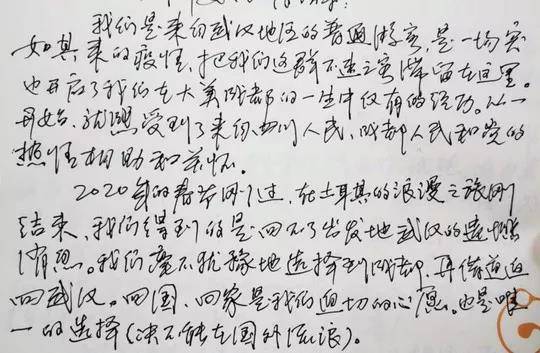 我们是来自武汉地区的普通游客，是一场突
如其来的疫情，把我们这群不速之客滞留在这里。
也开启了我们在大美成都的一生中仅有的经历。从一
开始，就感受到了来自四川人民、成都人民和党的
热情相助和关怀。
2020年的春节刚过，在土耳其的浪漫之旅刚
结束，我们得到的是回不了出发地武汉的遗憾
信息。我们毫不犹豫地选择到成都，再借道返
回武汉。回国、回家是我们迫切的心愿。也是唯
一的选择（决不能在国外流浪）。